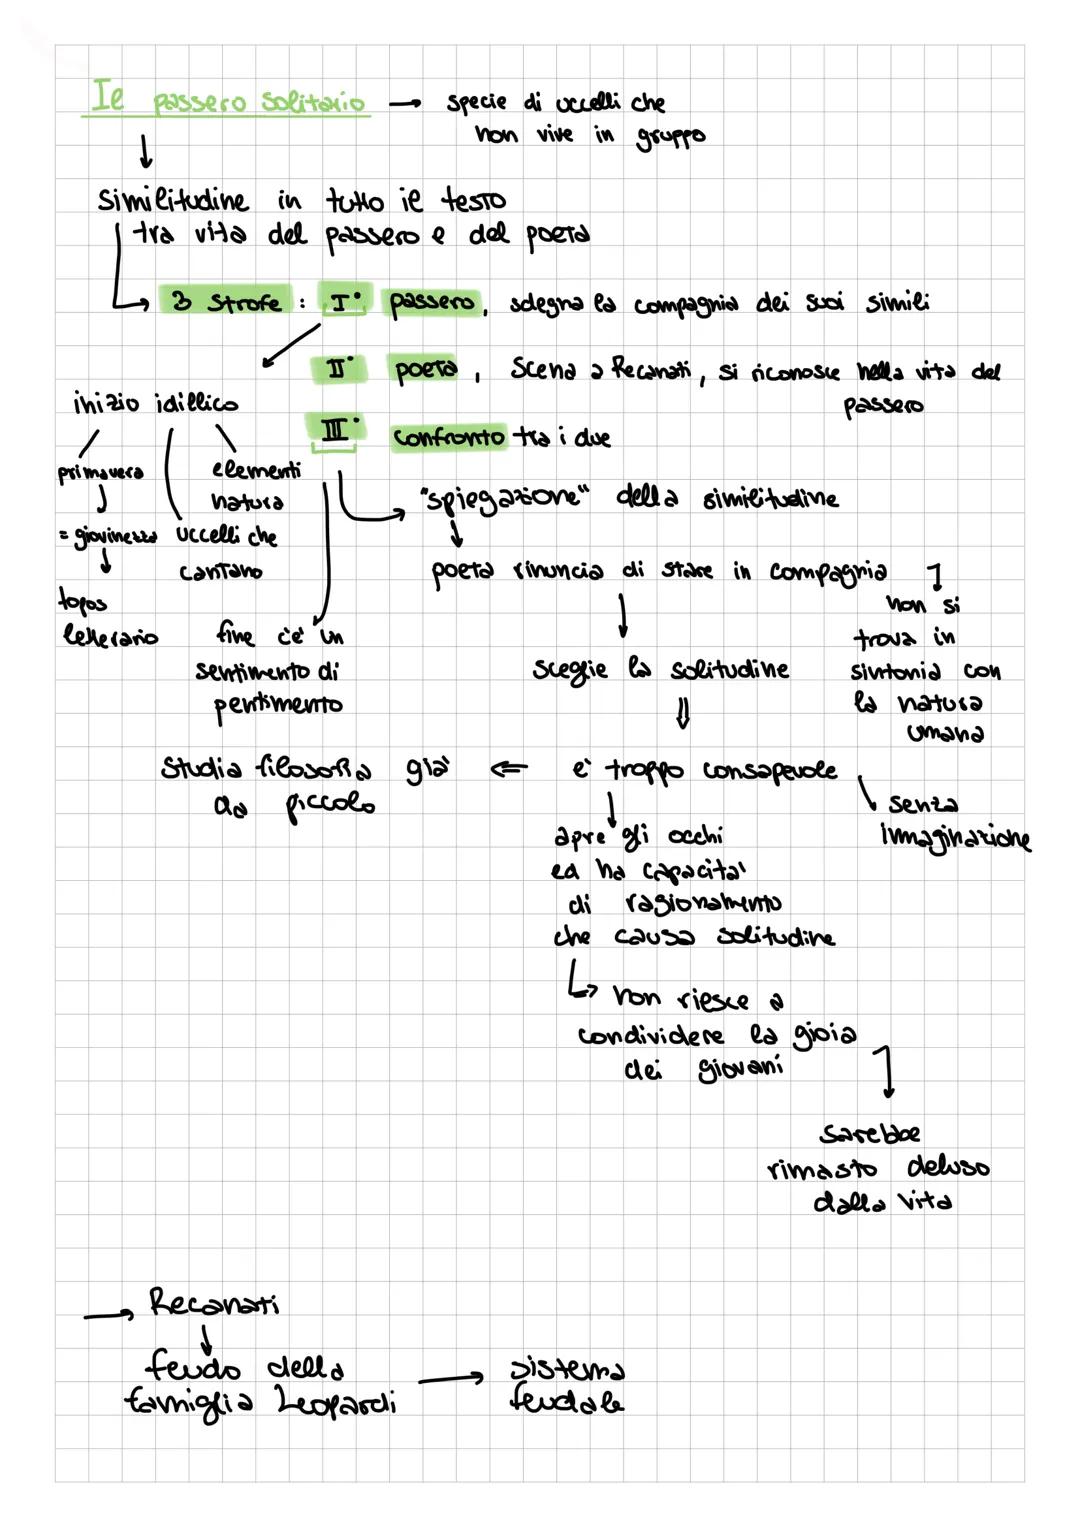 Il passero solitario → specie di uccelli che
non vive in gruppo
similitudine in tutto il testo
tra vita del passero e del poeta
3 strofe : I° passero, sdegna la compagnia dei suoi simili
II° poeta, scena a Recanati, si riconosce nella vita del
passero
III° confronto tra i due
inizio idillico
primavera
= giovinezza
topos
letterario
uccelli che
cantano
elementi
natura
fine c'e' un
sentimento di
pentimento
"spiegazione" della similitudine
poeta rinuncia di stare in compagnia
non si
trova in
sintonia con
la natura
umana
sceglie la solitudine
e' troppo consapevole
senza
immaginazione
Studia filosofia gia'
da piccolo
apre gli occhi
ed ha capacita'
di ragionamento
che causa solitudine
non riesce a
condividere la gioia
dei giovani
sarebbe
rimasto deluso
dalla vita
→ Recanati
feudo della
famiglia Leopardi → sistema
feudale